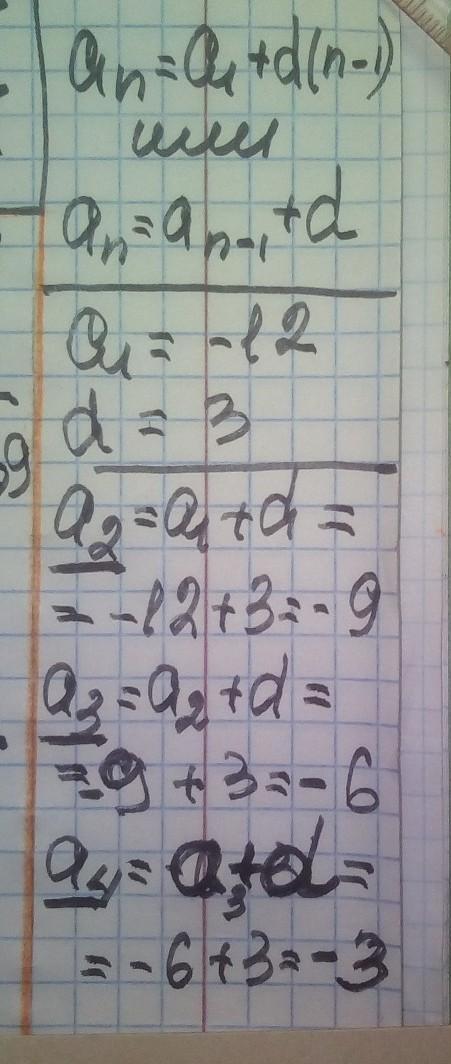 aₙ = a₁ + d(n-1)
или
aₙ = aₙ₋₁ + d
a₁ = -12
d = 3
9
a₂ = a₁ + d =
= -12 + 3 = -9
a₃ = a₂ + d =
= -9 + 3 = -6
a₄ = a₃ + d =
= -6 + 3 = -3